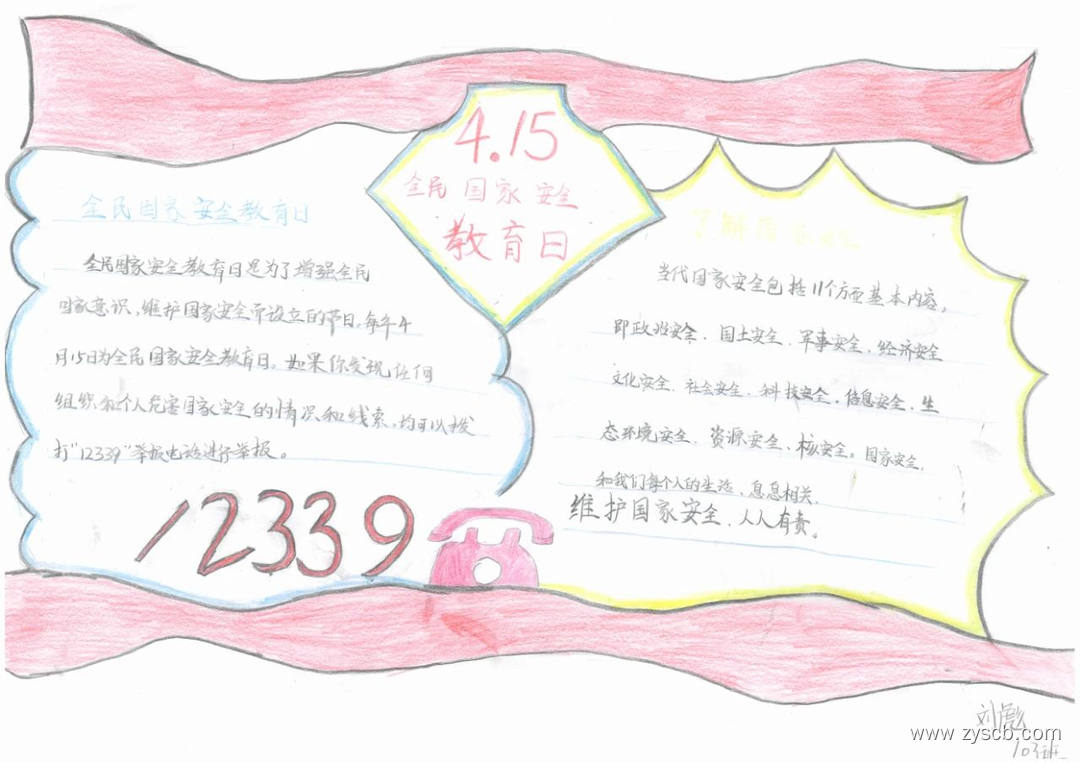 4.15
全民国家安全
教育日
全民国家安全教育日
全民国家安全教育日是为了增强全民
国家意识，维护国家安全而设立的节日。每年4
月15日为全民国家安全教育日。如果你发现任何
组织和个人危害国家安全的情况和线索，均可以拨
打"12339"举报电话进行举报。
12339
了解
当代国家安全包括11个方面基本内容，
即政治安全、国土安全、军事安全、经济安全
文化安全、社会安全、科技安全、信息安全、生
态环境安全、资源安全、核安全。国家安全，
和我们每个人的生活、息息相关、
维护国家安全、人人有责。
刘彪
103班
www.zyscb.com